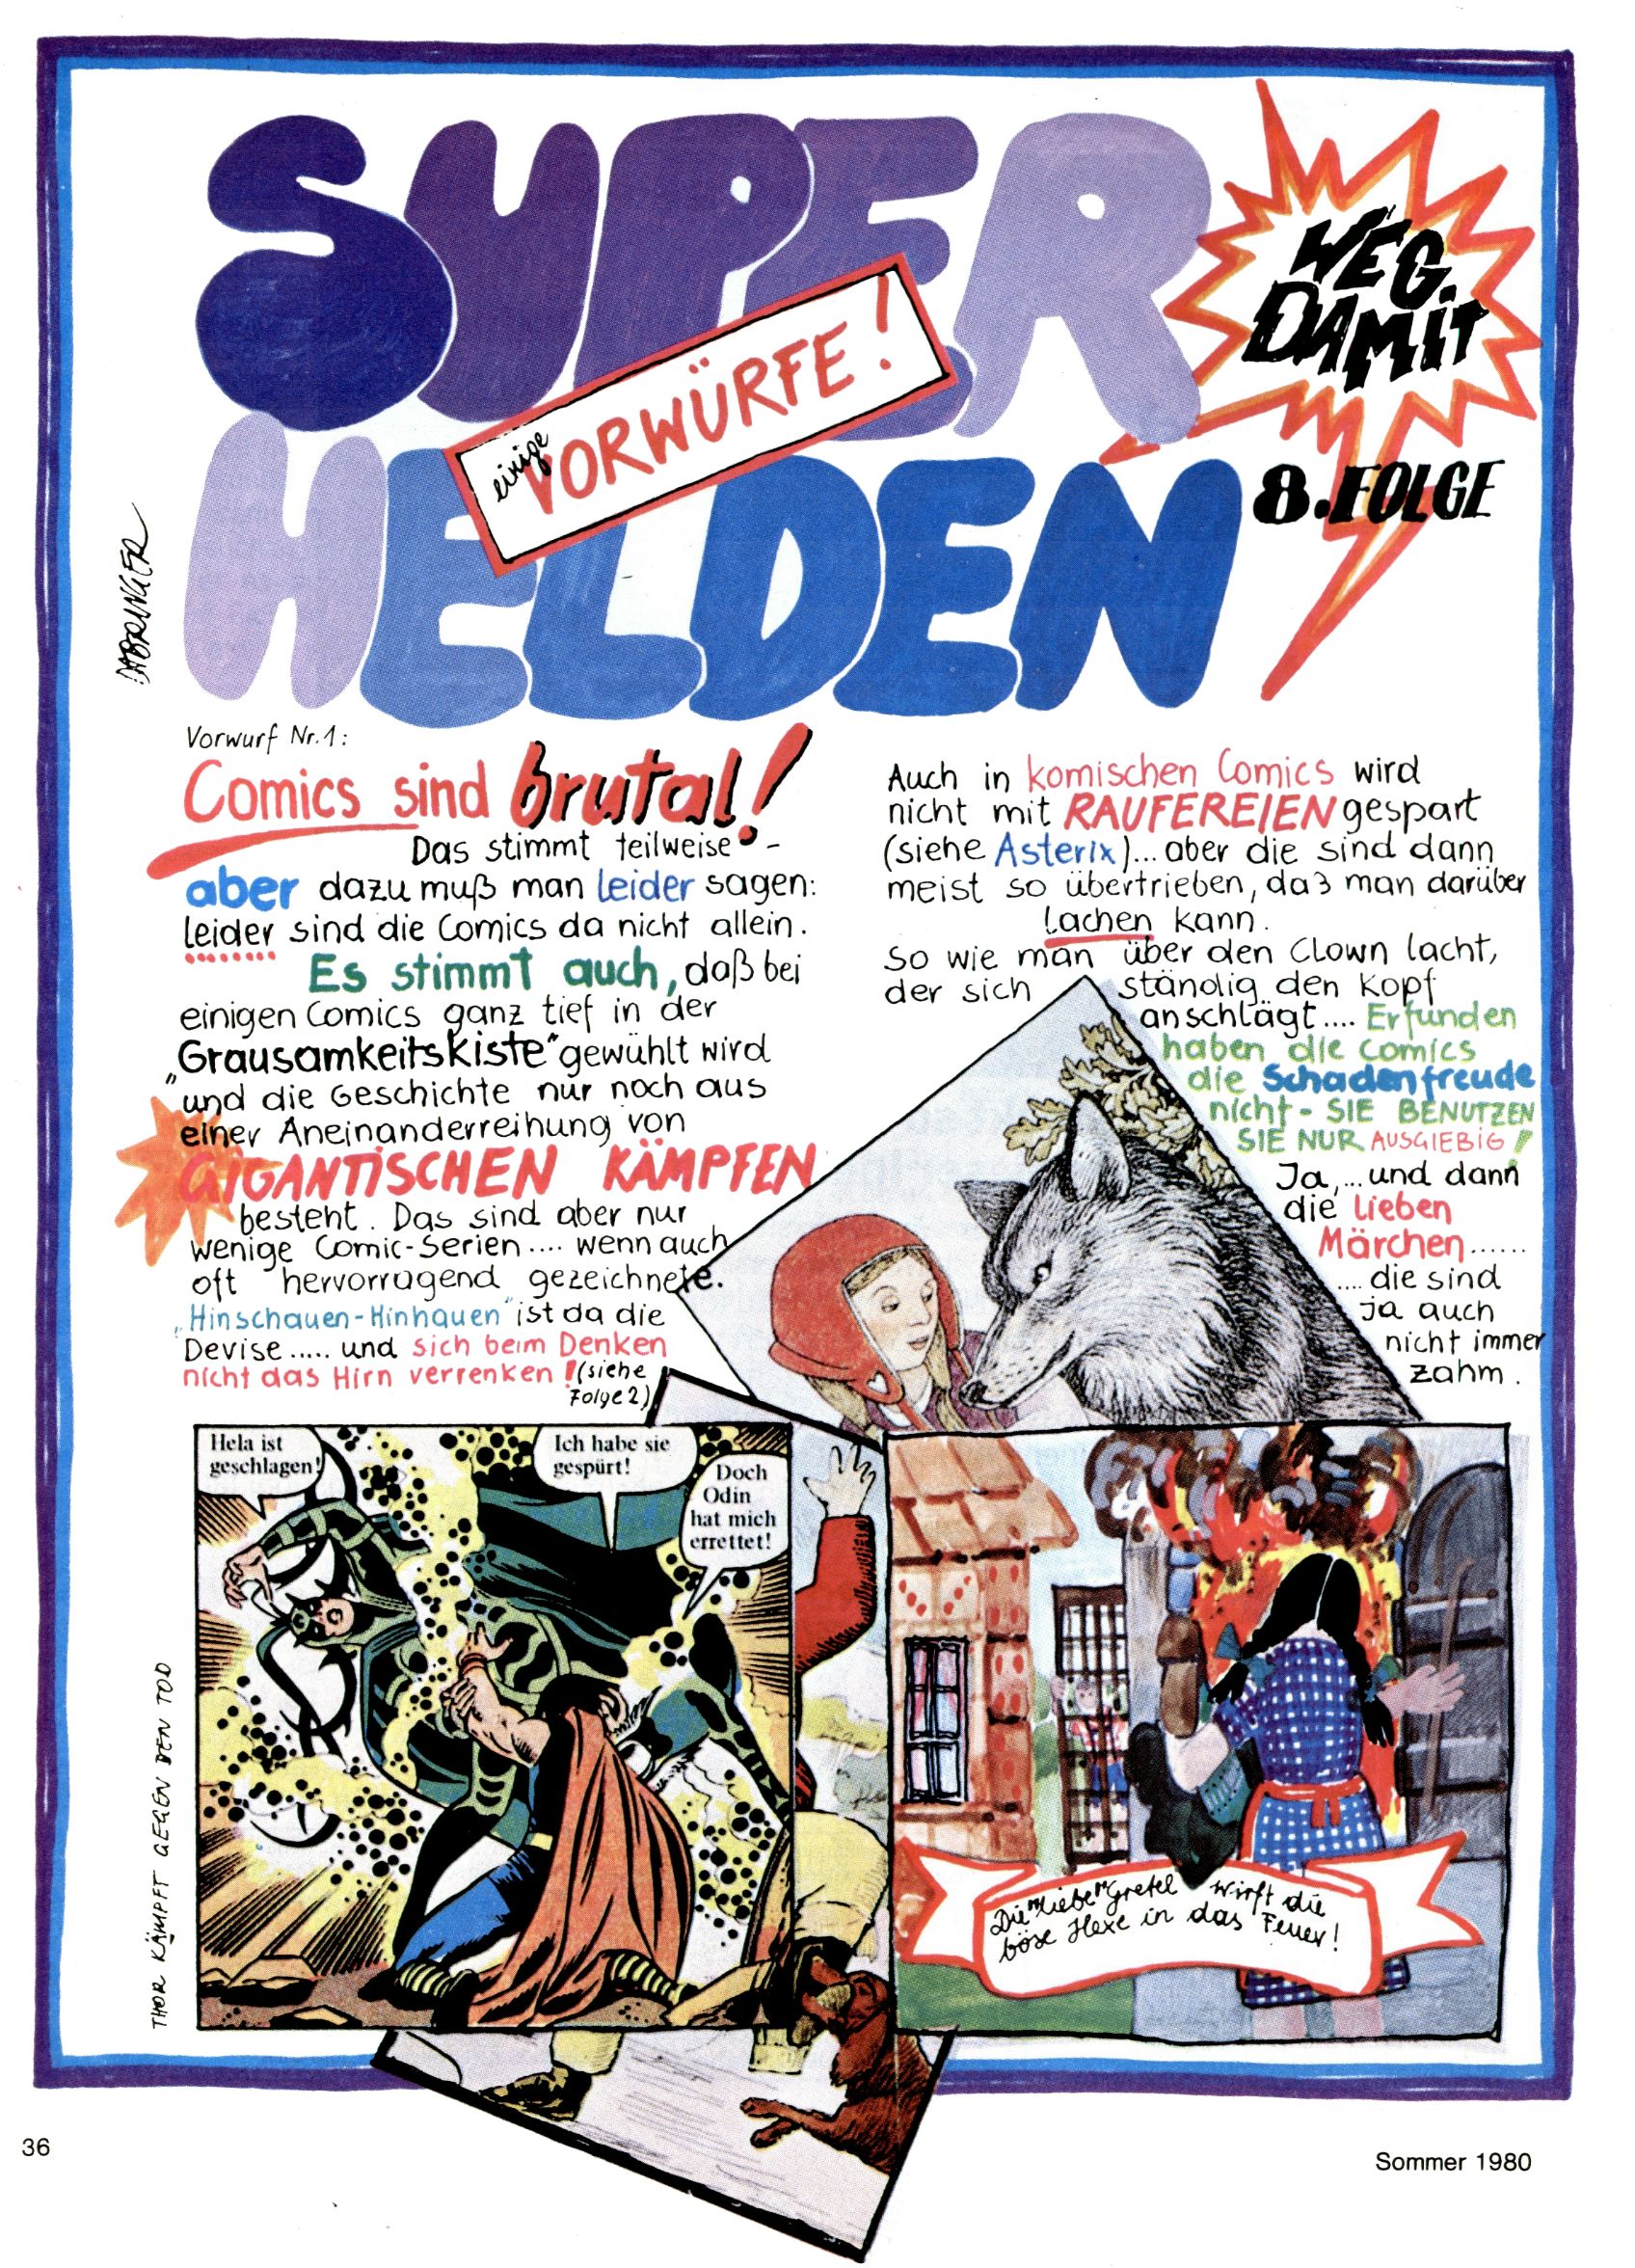 SUPER
HELDEN
einige VORWÜRFE!
WEG
DAMIT
8. FOLGE
Vorwurf Nr. 1:
Comics sind brutal!
Das stimmt teilweise -
aber dazu muß man leider sagen:
leider sind die Comics da nicht allein.
Es stimmt auch, daß bei
einigen Comics ganz tief in der
"Grausamkeitskiste" gewühlt wird
und die Geschichte nur noch aus
einer Aneinanderreihung von
GIGANTISCHEN KÄMPFEN
besteht. Das sind aber nur
wenige Comic-Serien.... wenn auch
oft hervorragend gezeichnete.
"Hinschauen-Hinhauen" ist da die
Devise..... und sich beim Denken
nicht das Hirn verrenken! (siehe
Folge 2)
Auch in komischen Comics wird
nicht mit RAUFEREIEN gespart
(siehe Asterix)... aber die sind dann
meist so übertrieben, daß man darüber
lachen kann.
So wie man über den Clown lacht,
der sich ständig den Kopf
anschlägt.... Erfunden
haben die Comics
die Schadenfreude
nicht - SIE BENUTZEN
SIE NUR AUSGIEBIG!
Ja,... und dann
die lieben
Märchen......
.... die sind
ja auch
nicht immer
zahm.
Hela ist
geschlagen!
Ich habe sie
gespürt!
Doch
Odin
hat mich
errettet!
THOR KÄMPFT GEGEN DEN TOD
Die "liebe" Gretel wirft die
böse Hexe in das Feuer!
36
Sommer 1980